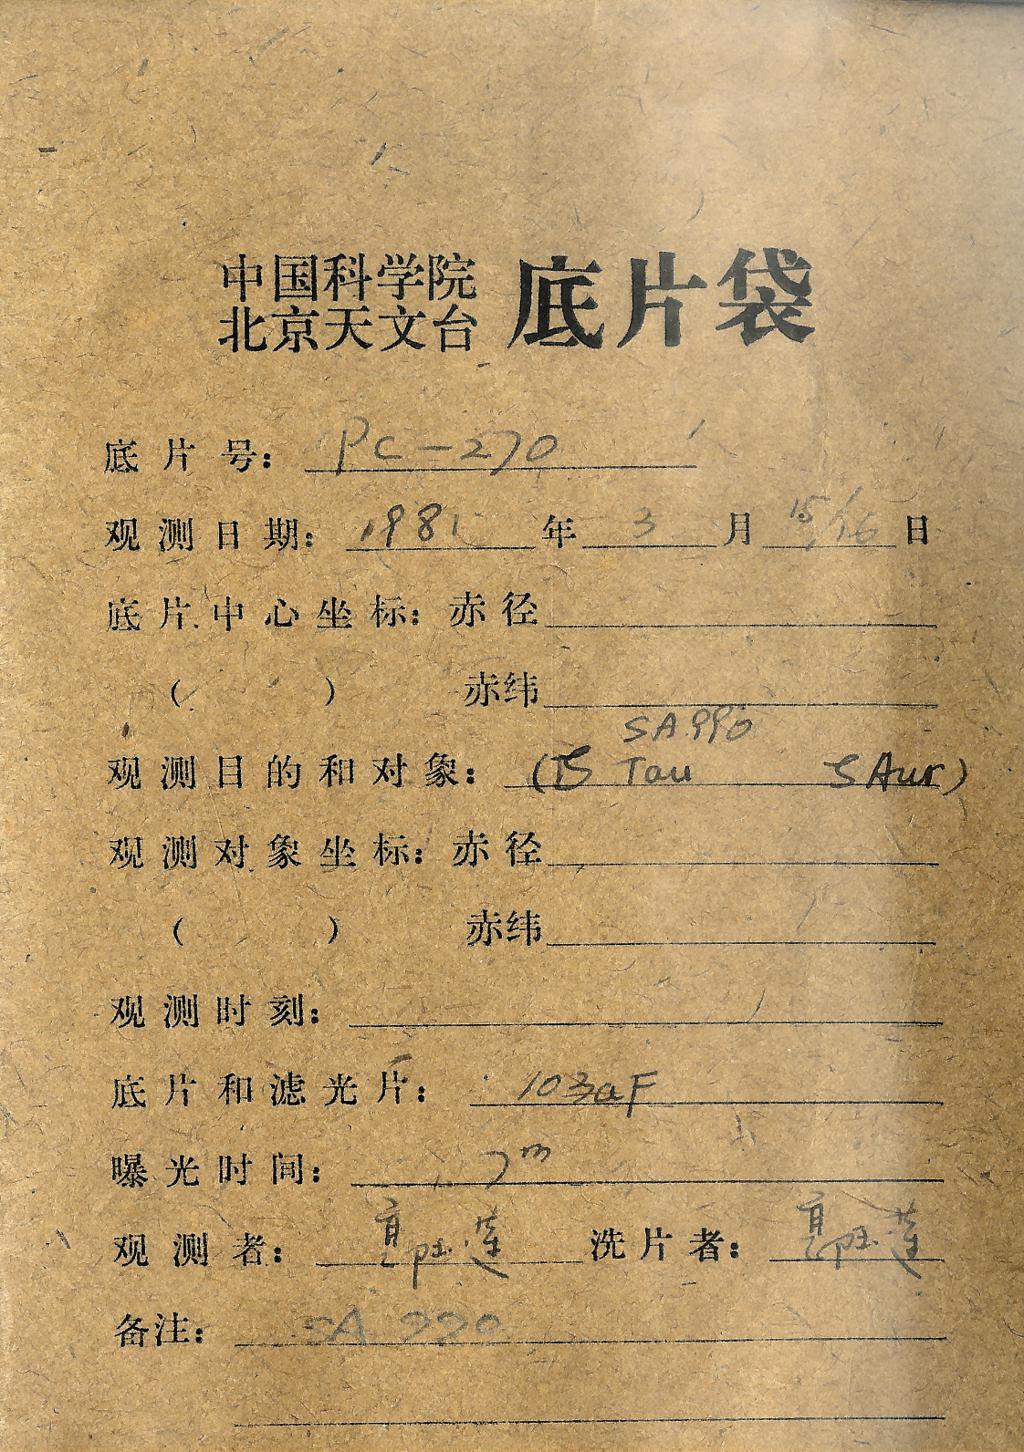 中国科学院
北京天文台 底片袋
底片号: PC-270
观测日期: 1981 年 3 月 15/16 日
底片中心坐标: 赤径
( ) 赤纬
SA 990
观测目的和对象: ( Tau Aur)
观测对象坐标: 赤径
( ) 赤纬
观测时刻:
底片和滤光片: 103aF
曝光时间: 7m
观测者: 洗片者:
备注: SA 990